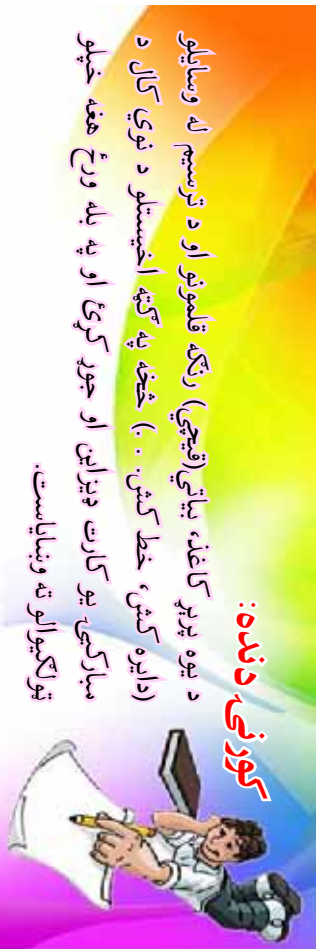 کورنۍ دنده:
د یوه پریړ کاغذ، بیاتي(قیچي) رنګه قلمونو او د ترسیم له وسایلو
(دایره کش، خط کش. . .) څخه په ګټه اخیستلو د نوي کال د
مبارکیۍ یو کارت ډیزاین او جوړ کړئ او په بله ورځ هغه خپلو
ټولګیوالو ته وښایاست.